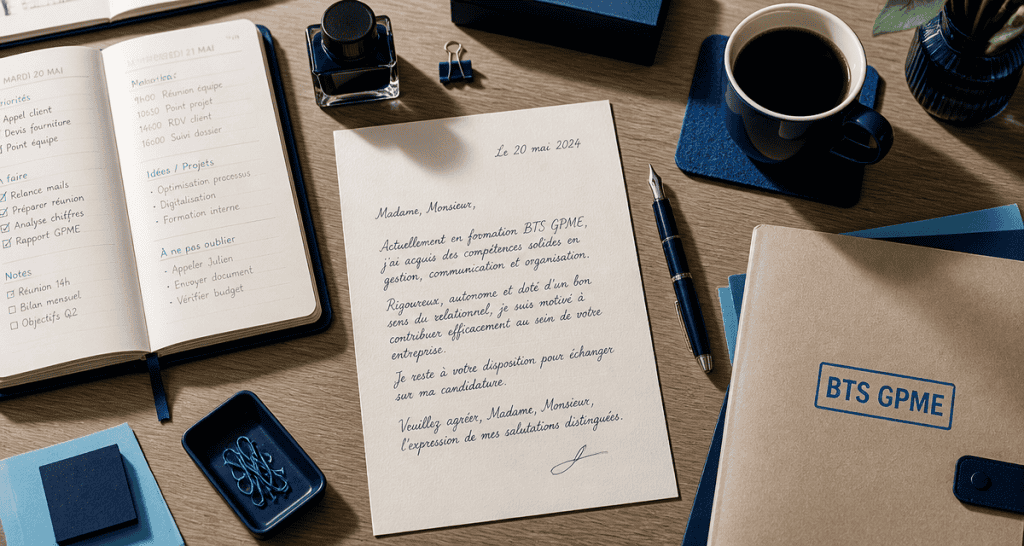 MARDI 20 MAI
riorités
Appel client
Devis fourniture
Point équipe
faire
Relance mails
Préparer réunion
Analyse chiffres
Rapport GPME
Notes
Réunion 14h
Bilan mensuel
Objectifs Q2
21 MAI
9h00 Réunion équipe
Point projet
RDV client
Suivi dossier
Idées / Projets
• Optimisation processus
• Digitalisation
• Formation interne
À ne pas oublier
• Appeler Julien
• Envoyer document
• Vérifier budget
Le 20 mai 2024
Madame, Monsieur,
Actuellement en formation BTS GPME,
j'ai acquis des compétences solides en
gestion, communication et organisation.
Rigoureux, autonome et doté d'un bon
sens du relationnel, je suis motivé à
contribuer efficacement au sein de votre
entreprise.
Je reste à votre disposition pour échanger
sur ma candidature.
Veuillez agréer, Madame, Monsieur,
l'expression de mes salutations distinguées.
BTS GPME